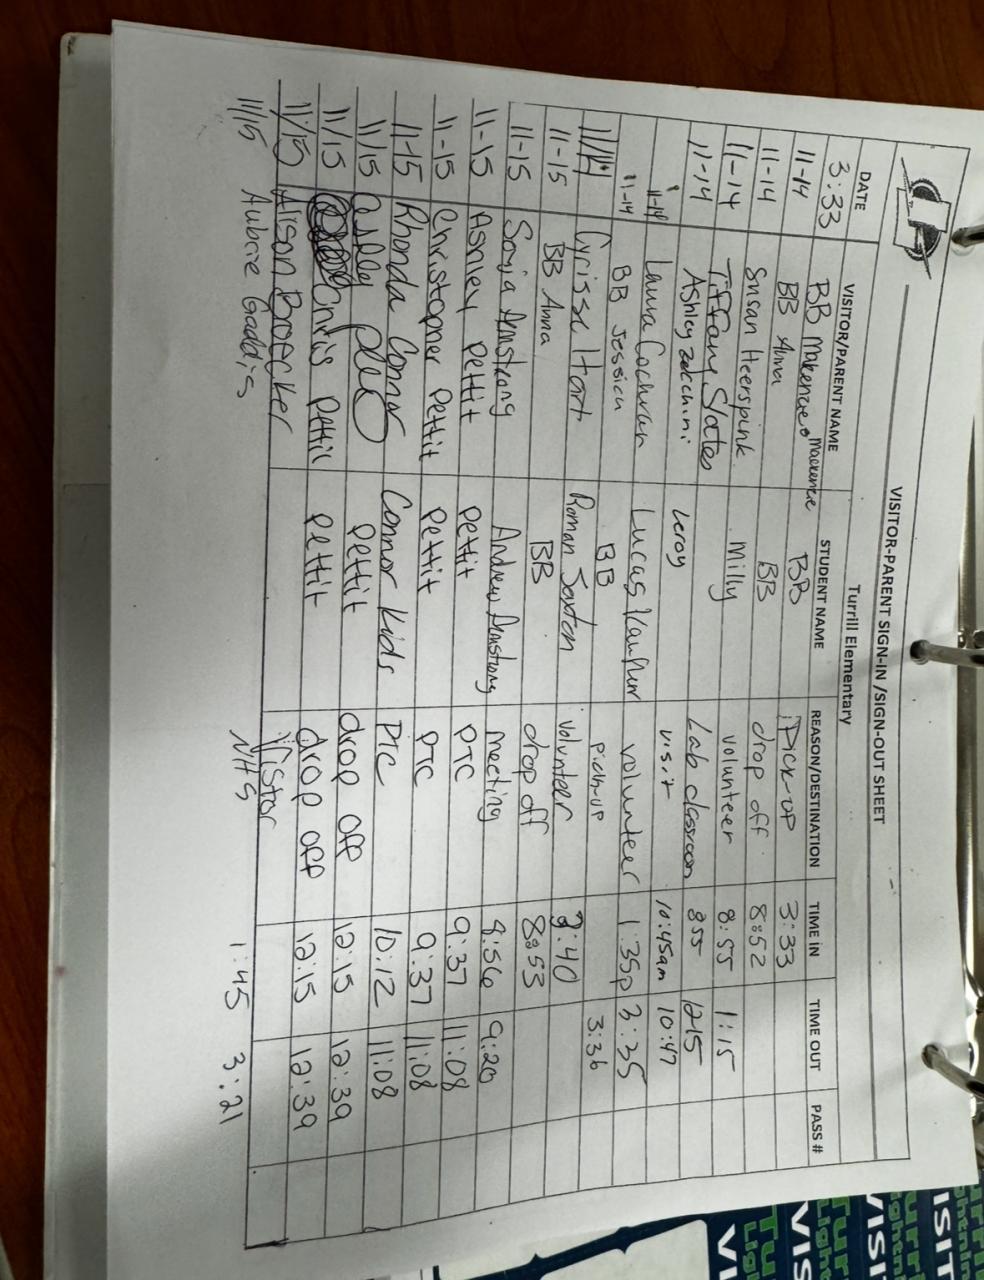 VISITOR-PARENT SIGN-IN /SIGN-OUT SHEET
Turrill Elementary
DATE VISITOR/PARENT NAME STUDENT NAME REASON/DESTINATION TIME IN TIME OUT PASS #
3:33 Makenzie
11-14 BB Makenzie BB Pick-up 3:33
11-14 BB Anna BB drop off 8:52
11-14 Susan Heerspink Milly volunteer 8:55 1:15
11-14 Tiffany Slates Lab classroom 855 1215
11-14 Ashley Zacchini Leroy visit 10:45am 10:47
11-14 Laura Cochran Lucas volunteer 1:35p 3:35
11-14 BB Jessica BB pick-up 3:36
11/14 Cyrisse Hart Roman Saxton volunteer :40
11-15 BB Anna BB drop off 8:53
11-15 Sonja Armstrong Andrew Armstrong meeting 8:56 9:20
11-15 Ashley Pettit Pettit PTC 9:37 11:08
11-15 Christopher Pettit Pettit PTC 9:37 11:08
11-15 Rhonda Connor Connor Kids PTC 10:12 11:08
11/15 Pettit drop off 12:15 12:39
11/15 Chris Pettit Pettit drop off 12:15 12:39
11/15 Alison Broecker Vistor
11/15 Aubrie Gaddis NHS 1:45 3:21
Turr
Light
VISI